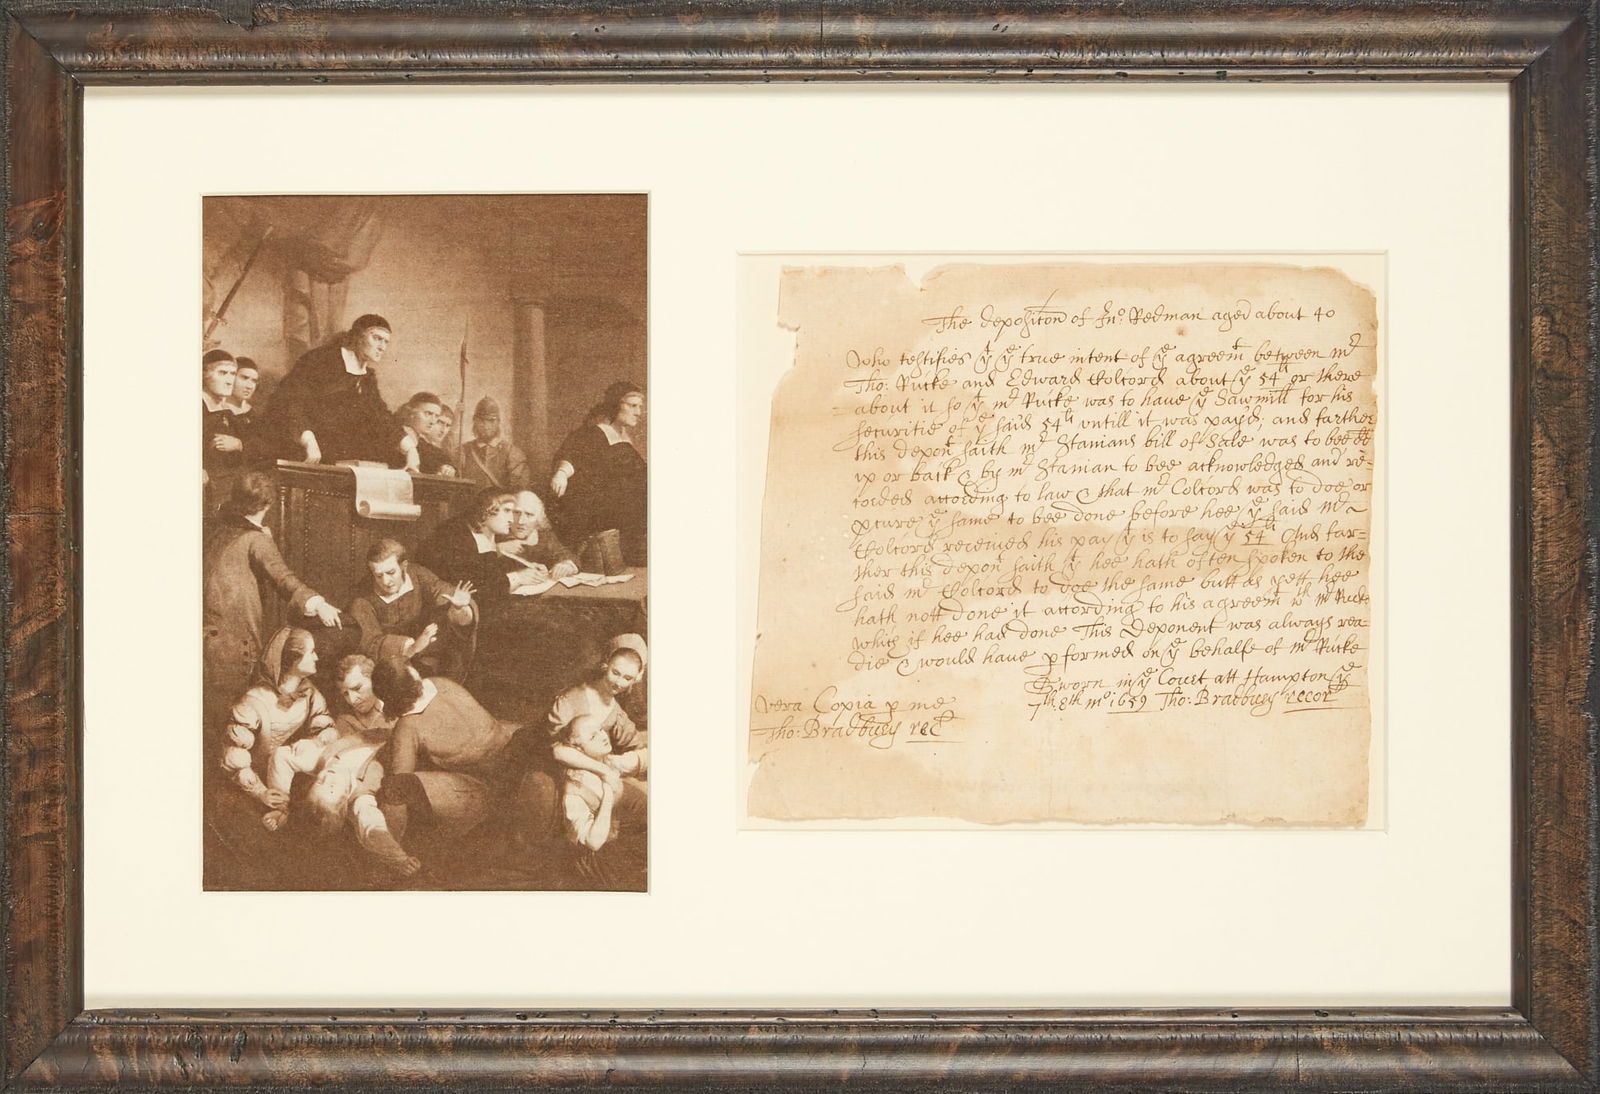 The depositon of Jnº: Redman aged about 40
who testifies yt ye true intent of ye agreemt between mr
Tho: Rucke and Edward Colcord about ye 54ll or there
about it so yt mr Rucke was to have ye Sawmill for his
securitie of ye said 54ll untill it was payd; and farther
this depont saith mr Stanians bill of Sale was to bee
up or back & by mr Stanian to bee acknowledged and re=
corded according to law & that mr Colcord was to doe or
pcure ye same to bee done before hee ye said mr
Colcord received his pay yt is to say ye 54ll And far=
ther this depont saith yt hee hath often spoken to the
said mr Colcord to doe the same butt as yett hee
hath nott done it according to his agreemt wth mr Rucke
which if hee had done This Deponent was always rea=
die & would have pformed on ye behalfe of mr Rucke
Sworn in ye Court att Hampton ye
7th: 8th mº 1659 Tho: Bradbury recor
vera Copia p me
Tho: Bradbury rec